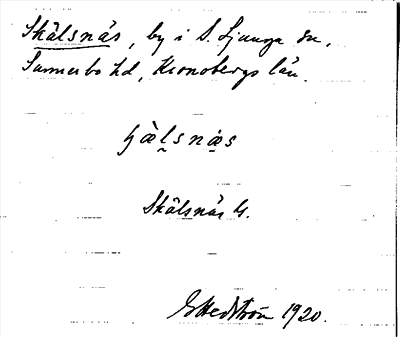 Skälsnäs, by i S. Ljunga sn,
Sunnerbo hd, Kronobergs län.
Skälsnäs G.
E Hedström 1920.